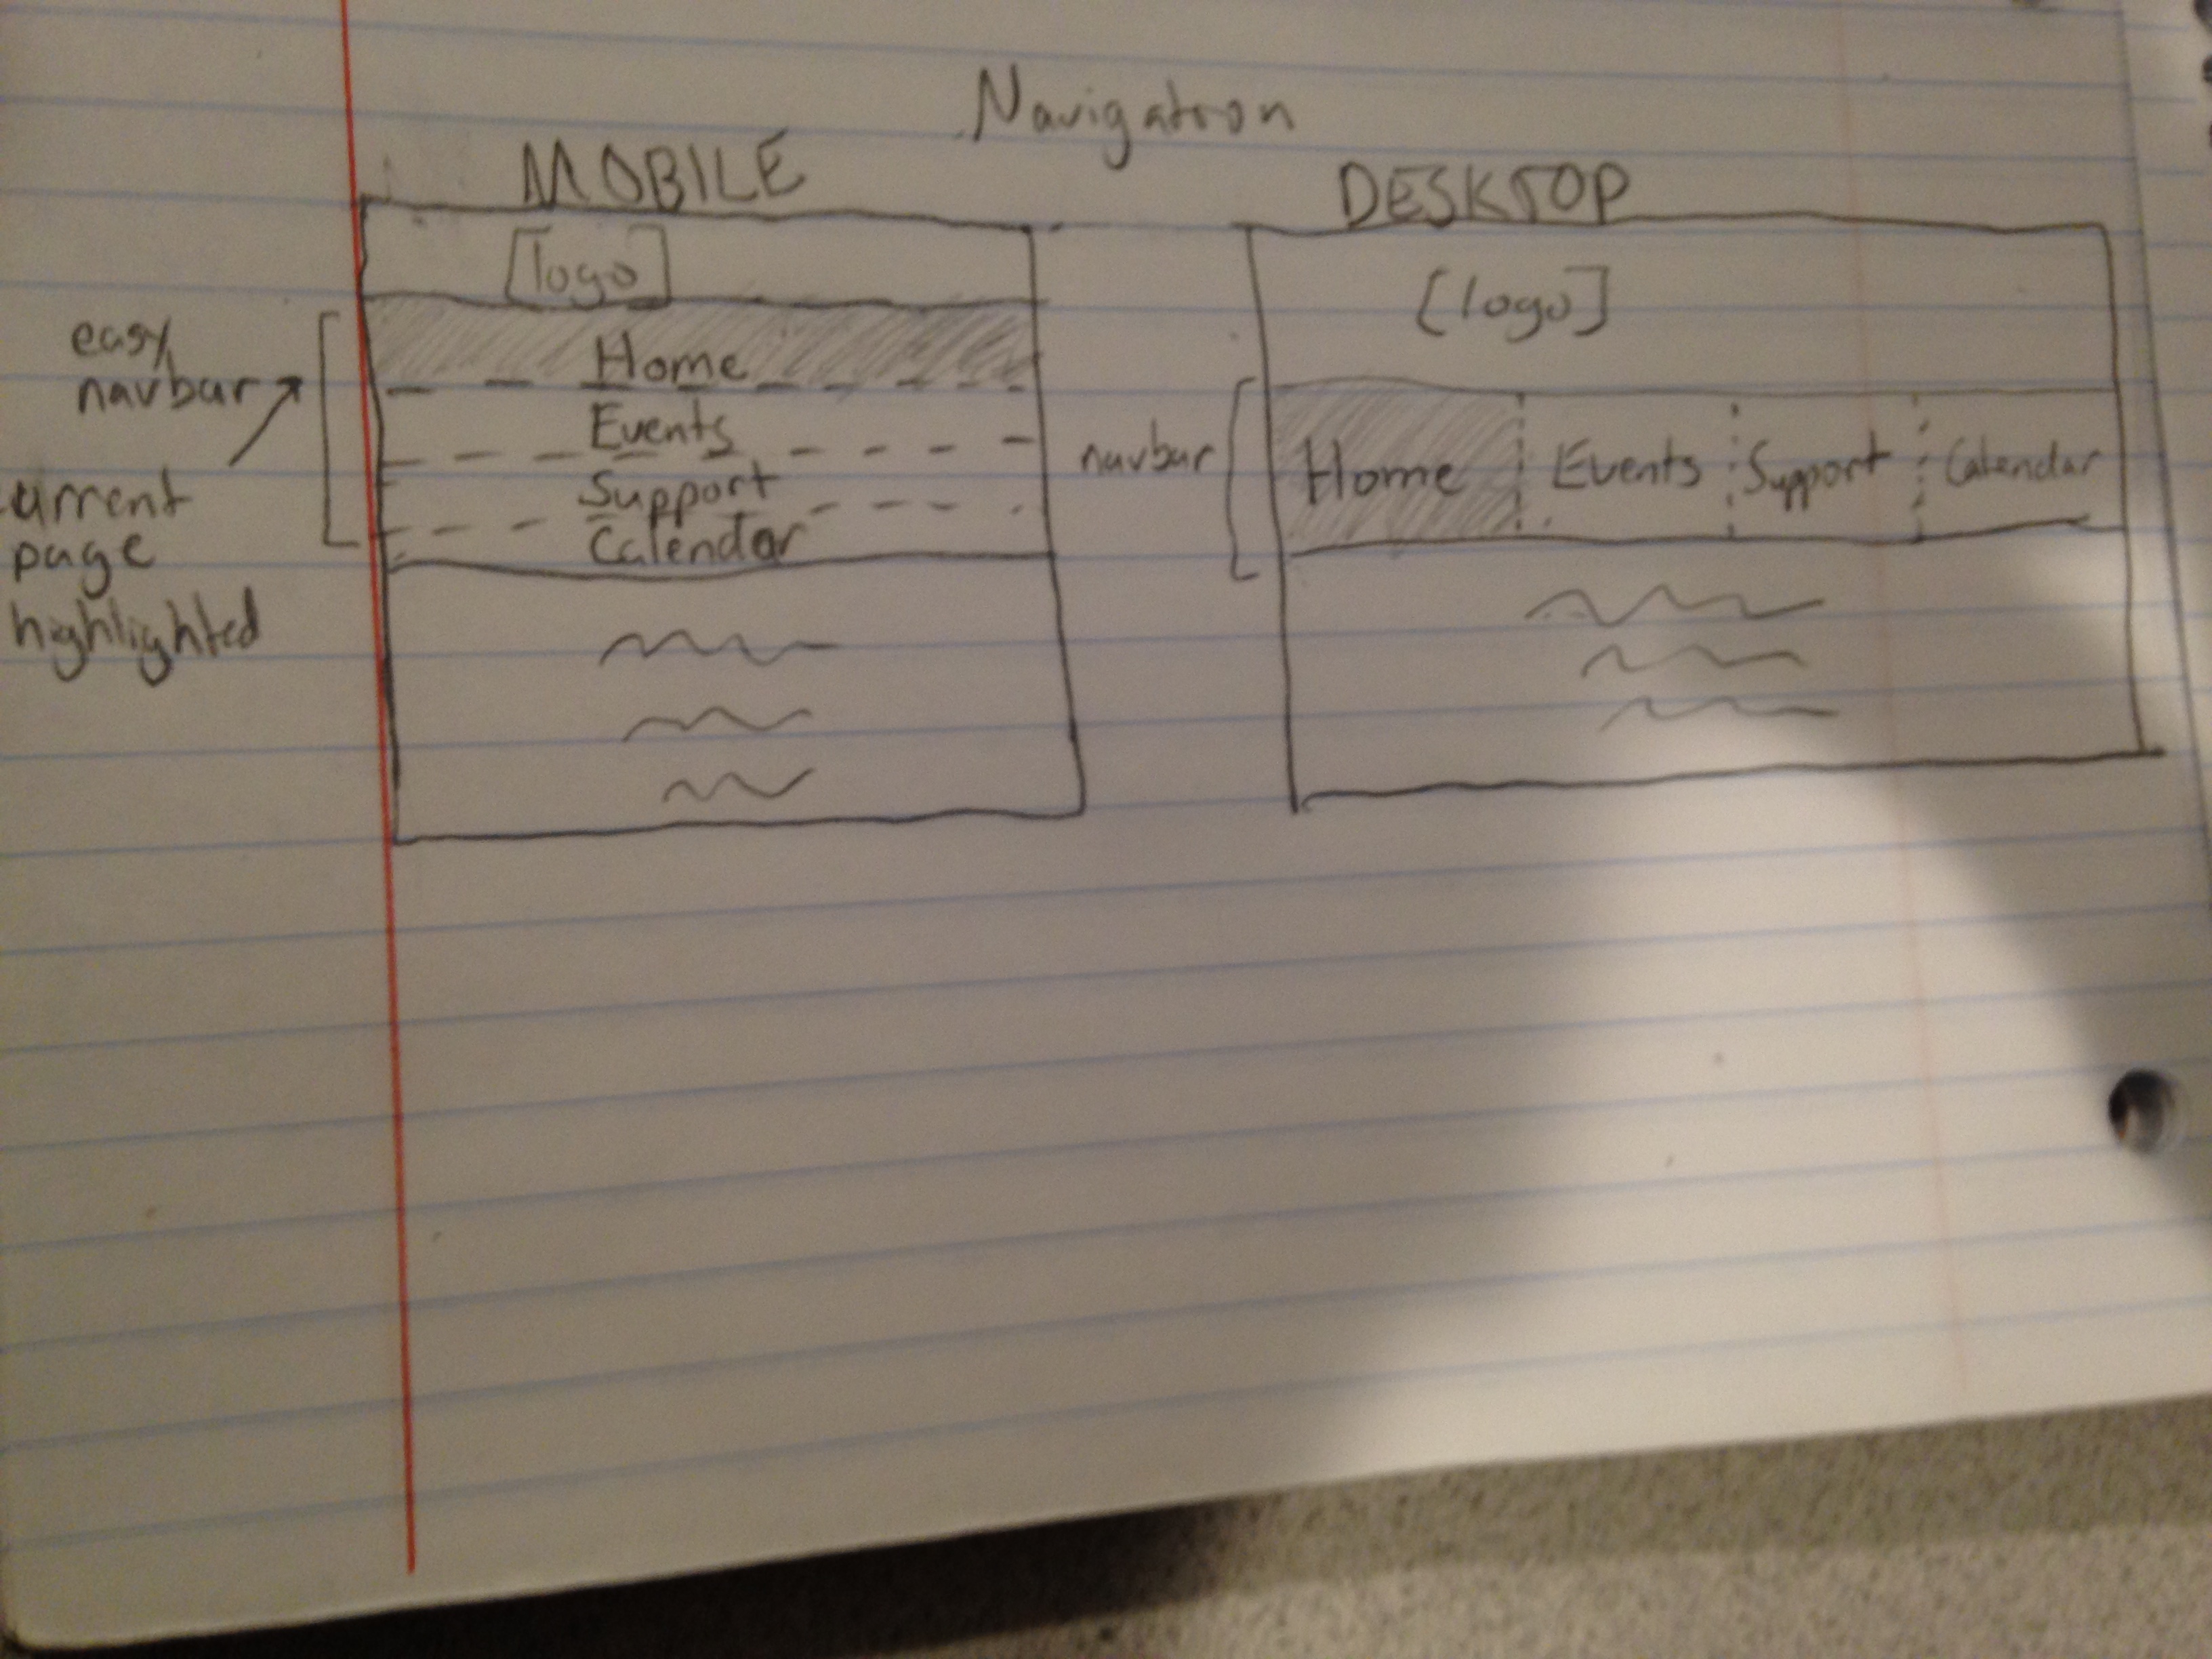 Navigation
MOBILE
[logo]
Home
Events
Support
Calendar
easy
navbar
current
page
highlighted
DESKTOP
[logo]
navbar
Home
Events
Support
Calendar